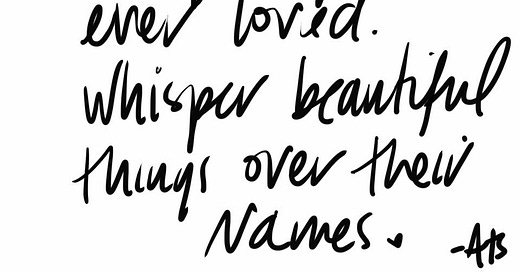 ever loved.
whisper beautiful
things over their
Names.
-Ats